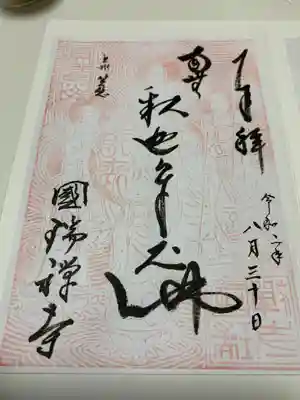 奉拝
令和二年
八月三十日
南無
釈迦牟尼佛
國瑞禅寺